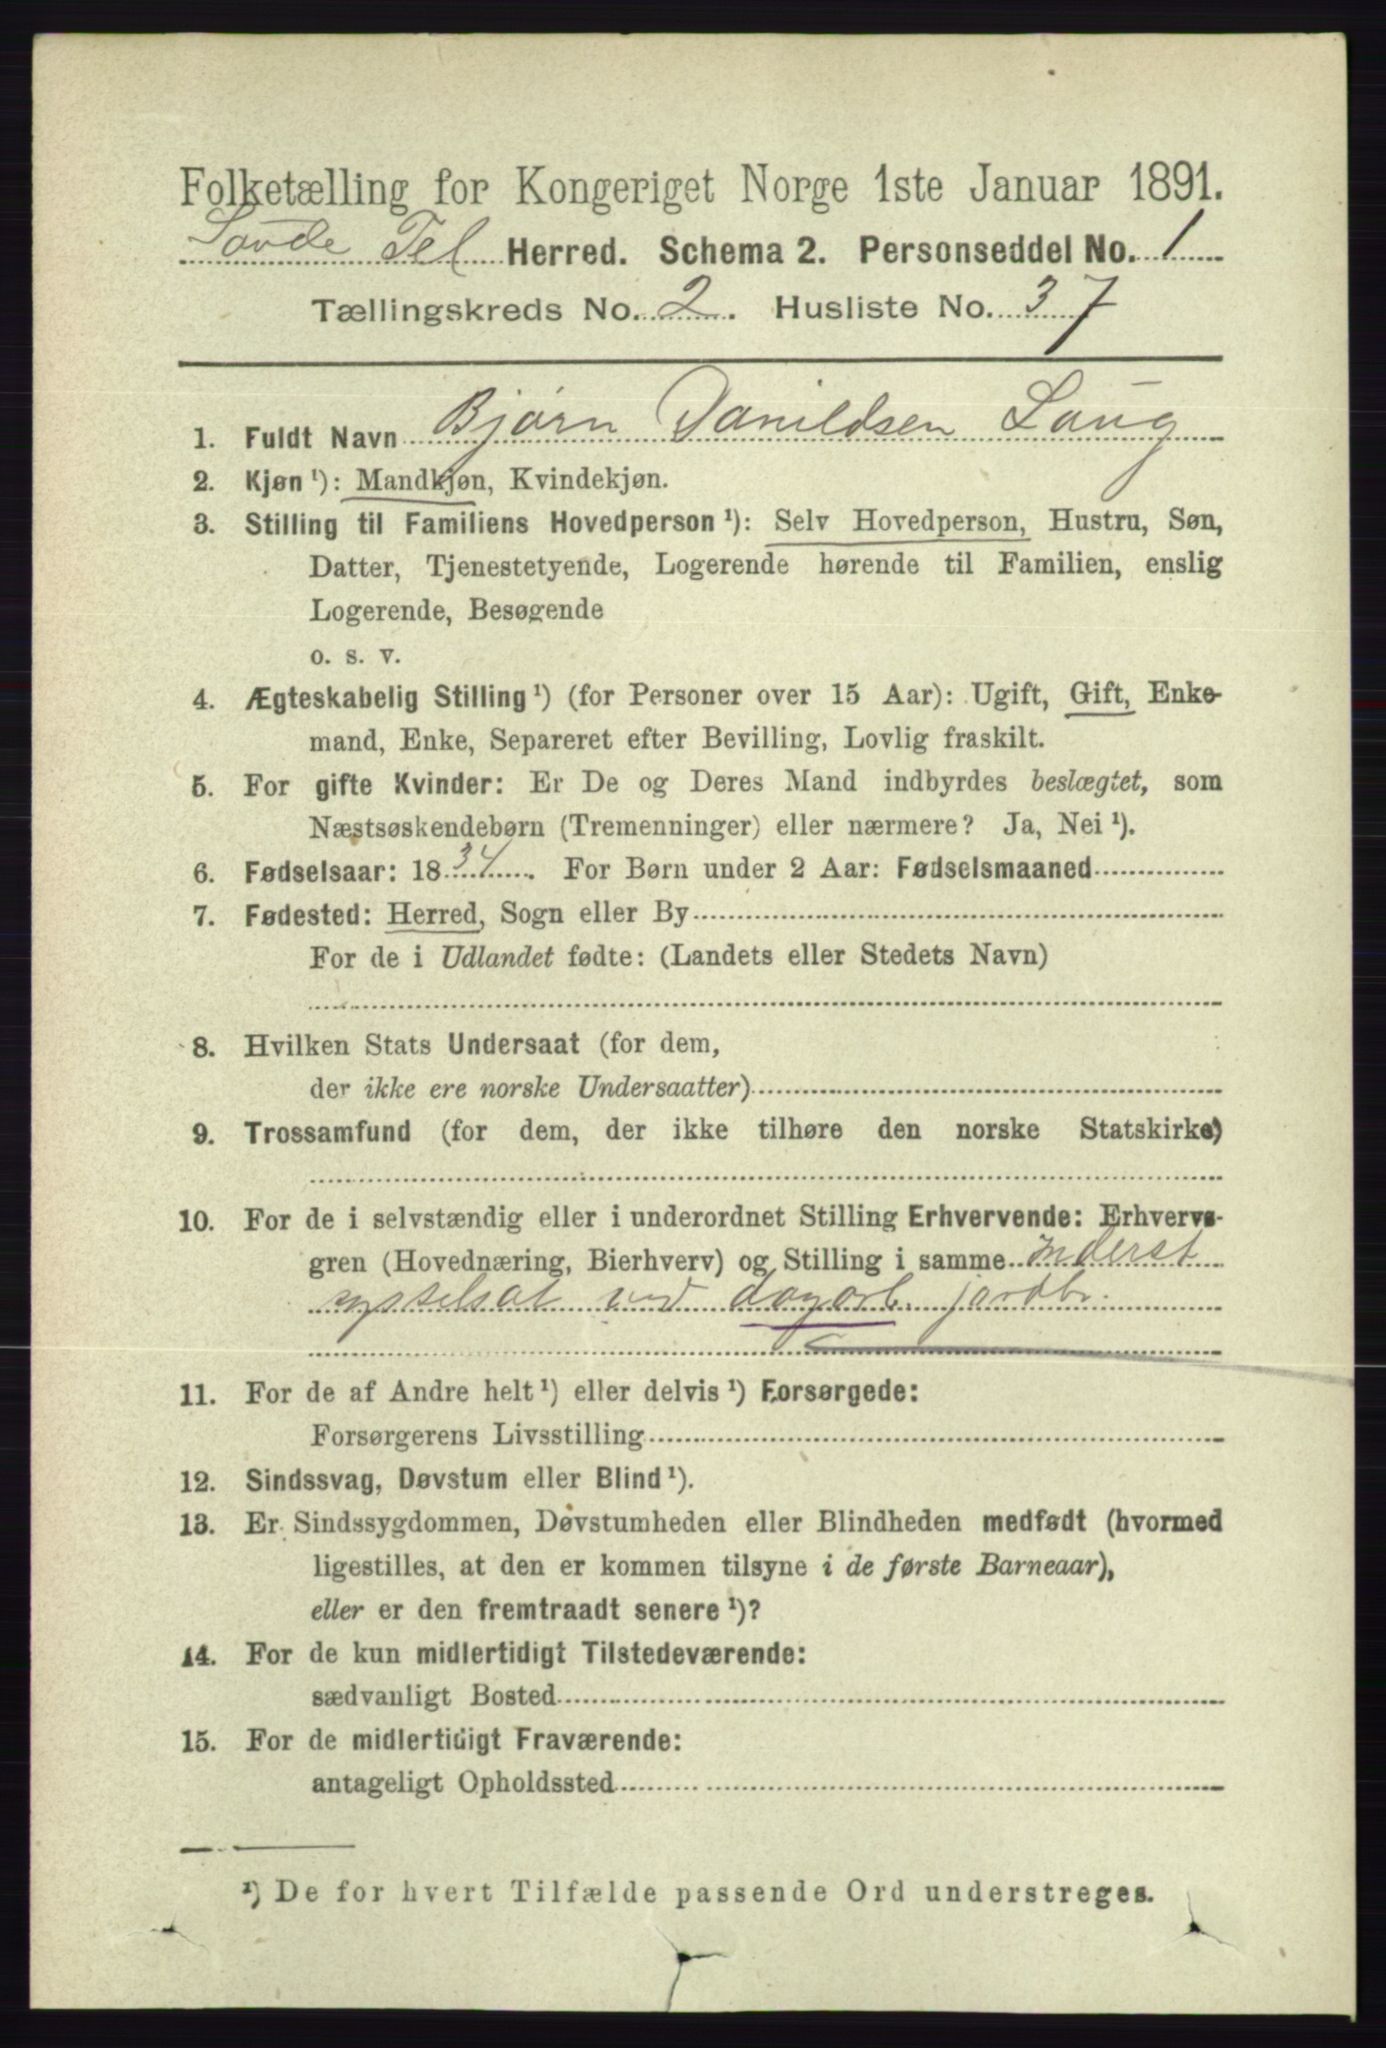 Folketælling for Kongeriget Norge 1ste Januar 1891.
Sovde Tel Herred. Schema 2. Personseddel No. 1
Tællingskreds No. 2. Husliste No. 37
1. Fuldt Navn Bjørn Danildsen Loug
2. Kjøn ¹): Mandkjøn, Kvindekjøn.
3. Stilling til Familiens Hovedperson ¹): Selv Hovedperson, Hustru, Søn,
Datter, Tjenestetyende, Logerende hørende til Familien, enslig
Logerende, Besøgende
o. s. v.
4. Ægteskabelig Stilling ¹) (for Personer over 15 Aar): Ugift, Gift, Enke-
mand, Enke, Separeret efter Bevilling, Lovlig fraskilt.
5. For gifte Kvinder: Er De og Deres Mand indbyrdes beslægtet, som
Næstsøskendebørn (Tremenninger) eller nærmere? Ja, Nei ¹).
6. Fødselsaar: 1834. For Børn under 2 Aar: Fødselsmaaned
7. Fødested: Herred, Sogn eller By
For de i Udlandet fødte: (Landets eller Stedets Navn)
8. Hvilken Stats Undersaat (for dem,
der ikke ere norske Undersaatter)
9. Trossamfund (for dem, der ikke tilhøre den norske Statskirke)
10. For de i selvstændig eller i underordnet Stilling Erhvervende: Erhvervs-
gren (Hovednæring, Bierhverv) og Stilling i samme Inderst
sysselsat ved dagarb. jordbr.
11. For de af Andre helt ¹) eller delvis ¹) Forsørgede:
Forsørgerens Livsstilling
12. Sindssvag, Døvstum eller Blind ¹).
13. Er Sindssygdommen, Døvstumheden eller Blindheden medfødt (hvormed
ligestilles, at den er kommen tilsyne i de første Barneaar),
eller er den fremtraadt senere ¹)?
14. For de kun midlertidigt Tilstedeværende:
sædvanligt Bosted
15. For de midlertidigt Fraværende:
antageligt Opholdssted
¹) De for hvert Tilfælde passende Ord understreges.